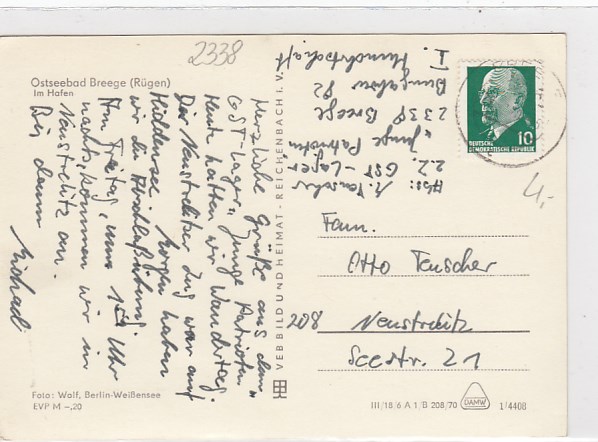 2338
Ostseebad Breege (Rügen)
Im Hafen
Herzliche Grüße aus dem
GST-Lager „Junge Patrioten"
Heute hatten wir Wandertag.
Der Neustrelitzer Zug war auf
Hiddensee. Morgen haben
wir die Abschlußübung.
Am Freitag, um 15 Uhr
nachts, kommen wir in
Neustrelitz an.
Bis dann
Michael
Foto: Wolf, Berlin-Weißensee
EVP M –,20
VEB BILD UND HEIMAT · REICHENBACH I. V.
Abs.: M. Teuscher
z.Z. GST-Lager
„Junge Patrioten
2338 Breege
Bungalow 82
I. Hundertschaft
DEUTSCHE
DEMOKRATISCHE REPUBLIK
10
4,-
Fam.
Otto Teuscher
208 Neustrelitz
Seestr. 21
III/18/6 A 1 B 208/70
DAMW
1/4408